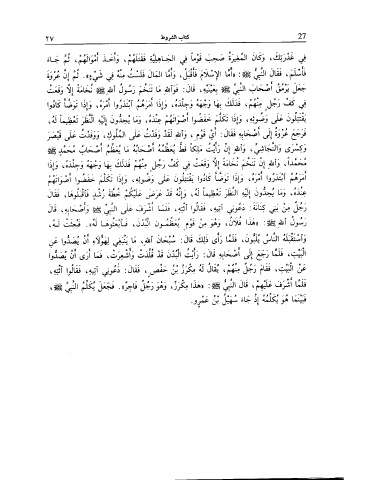 27 كتاب الشروط ٢٧
فِي غَدْرَتِكَ، وَكَانَ الْمُغِيرَةُ صَحِبَ قَوْماً فِي الْجَاهِلِيَّةِ فَقَتَلَهُمْ، وَأَخَذَ أَمْوَالَهُمْ، ثُمَّ جَاءَ
فَأَسْلَمَ، فَقَالَ النَّبِيُّ ﷺ: «أَمَّا الإِسْلَامَ فَأَقْبَلُ، وَأَمَّا الْمَالَ فَلَسْتُ مِنْهُ فِي شَيْءٍ». ثُمَّ إِنَّ عُرْوَةَ
جَعَلَ يَرْمُقُ أَصْحَابَ النَّبِيِّ ﷺ بِعَيْنَيْهِ، قَالَ: فَوَاللهِ مَا تَنَخَّمَ رَسُولُ اللهِ ﷺ نُخَامَةً إِلَّا وَقَعَتْ
فِي كَفِّ رَجُلٍ مِنْهُمْ، فَدَلَكَ بِهَا وَجْهَهُ وَجِلْدَهُ، وَإِذَا أَمَرَهُمُ ابْتَدَرُوا أَمْرَهُ، وَإِذَا تَوَضَّأَ كَادُوا
يَقْتَتِلُونَ عَلَى وَضُوئِهِ، وَإِذَا تَكَلَّمَ خَفَضُوا أَصْوَاتَهُمْ عِنْدَهُ، وَمَا يُحِدُّونَ إِلَيْهِ النَّظَرَ تَعْظِيماً لَهُ،
فَرَجَعَ عُرْوَةُ إِلَى أَصْحَابِهِ فَقَالَ: أَيْ قَوْمِ، وَاللهِ لَقَدْ وَفَدْتُ عَلَى الْمُلُوكِ، وَوَفَدْتُ عَلَى قَيْصَرَ
وَكِسْرَى وَالنَّجَاشِيِّ، وَاللهِ إِنْ رَأَيْتُ مَلِكاً قَطُّ يُعَظِّمُهُ أَصْحَابُهُ مَا يُعَظِّمُ أَصْحَابُ مُحَمَّدٍ ﷺ
مُحَمَّداً، وَاللهِ إِنْ تَنَخَّمَ نُخَامَةً إِلَّا وَقَعَتْ فِي كَفِّ رَجُلٍ مِنْهُمْ فَدَلَكَ بِهَا وَجْهَهُ وَجِلْدَهُ، وَإِذَا
أَمَرَهُمُ ابْتَدَرُوا أَمْرَهُ، وَإِذَا تَوَضَّأَ كَادُوا يَقْتَتِلُونَ عَلَى وَضُوئِهِ، وَإِذَا تَكَلَّمَ خَفَضُوا أَصْوَاتَهُمْ
عِنْدَهُ، وَمَا يُحِدُّونَ إِلَيْهِ النَّظَرَ تَعْظِيماً لَهُ، وَإِنَّهُ قَدْ عَرَضَ عَلَيْكُمْ خُطَّةَ رُشْدٍ فَاقْبَلُوهَا، فَقَالَ
رَجُلٌ مِنْ بَنِي كِنَانَةَ: دَعُونِي آتِيهِ، فَقَالُوا ائْتِهِ، فَلَمَّا أَشْرَفَ عَلَى النَّبِيِّ ﷺ وَأَصْحَابِهِ، قَالَ
رَسُولُ اللهِ ﷺ: «هَذَا فُلَانٌ، وَهُوَ مِنْ قَوْمٍ يُعَظِّمُونَ الْبُدْنَ، فَابْعَثُوهَا لَهُ». فَبُعِثَتْ لَهُ،
وَاسْتَقْبَلَهُ النَّاسُ يُلَبُّونَ، فَلَمَّا رَأَى ذَلِكَ قَالَ: سُبْحَانَ اللهِ، مَا يَنْبَغِي لِهَؤُلَاءِ أَنْ يُصَدُّوا عَنِ
الْبَيْتِ، فَلَمَّا رَجَعَ إِلَى أَصْحَابِهِ قَالَ: رَأَيْتُ الْبُدْنَ قَدْ قُلِّدَتْ وَأُشْعِرَتْ، فَمَا أَرَى أَنْ يُصَدُّوا
عَنِ الْبَيْتِ، فَقَامَ رَجُلٌ مِنْهُمْ، يُقَالُ لَهُ مِكْرَزُ بْنُ حَفْصٍ، فَقَالَ: دَعُونِي آتِيهِ، فَقَالُوا ائْتِهِ،
فَلَمَّا أَشْرَفَ عَلَيْهِمْ، قَالَ النَّبِيُّ ﷺ: «هَذَا مِكْرَزٌ، وَهُوَ رَجُلٌ فَاجِرٌ». فَجَعَلَ يُكَلِّمُ النَّبِيَّ ﷺ،
فَبَيْنَمَا هُوَ يُكَلِّمُهُ إِذْ جَاءَ سُهَيْلُ بْنُ عَمْرٍو.